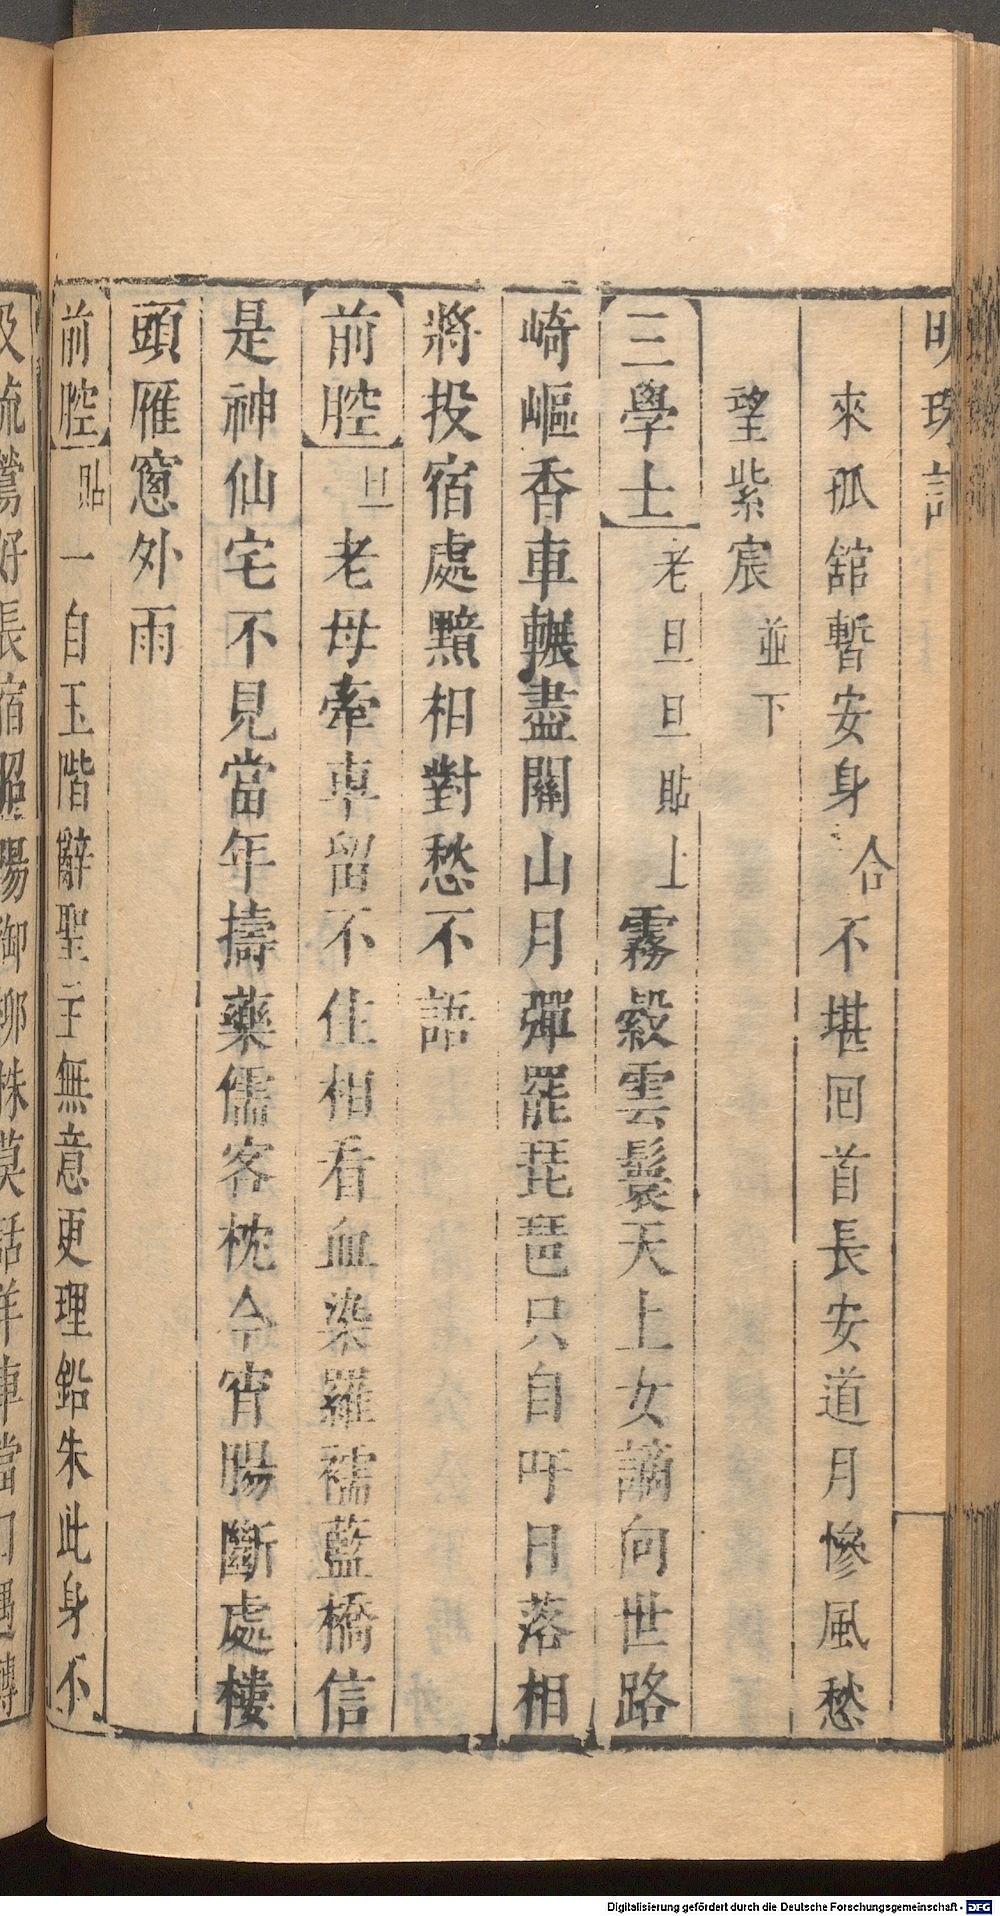 明珠記
來孤舘暫安身合不堪囘首長安道月慘風愁
望紫宸並下
三學士老旦旦貼上霧縠雲鬟天上女謫向世路
崎嶇香車輾盡關山月彈罷琵琶只自吁日落相
將投宿處黯相對愁不語
前腔旦老母牽車留不住相看血染羅襦藍橋信
是神仙宅不見當年擣藥儒客枕今宵腸斷處樓
頭雁窻外雨
前腔貼一自玉階辭聖主無意更理鉛朱此身不
鶯好長宿昭陽御柳株莫話羊車當門遇轉
Digitalisierung gefördert durch die Deutsche Forschungsgemeinschaft - DFG